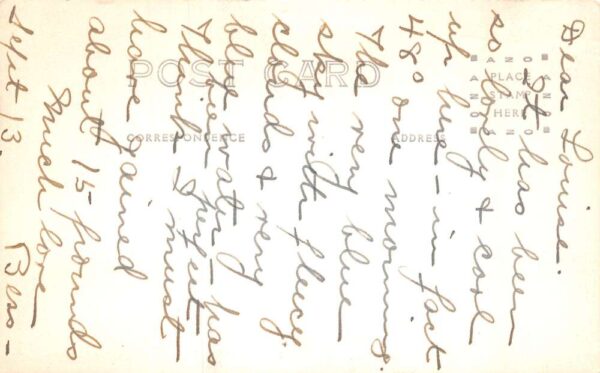 POST CARD
CORRESPONDENCE
ADDRESS
AZO
PLACE
STAMP
HERE
AZO
Dear Louise.
It has been
so lovely & cool
up here - in fact
48° one morning.
The very blue
sky with fleecy
clouds & very
blue water - has
been perfect.
Think I must
have gained
about 15 pounds
Much love
Bess -
Sept - 13.